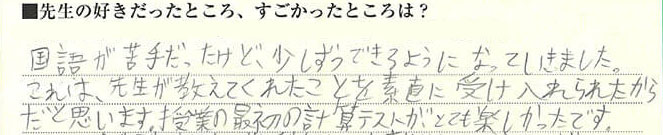 ■先生の好きだったところ、すごかったところは?
国語が苦手だったけど、少しずつできるようになっていきました。
これは、先生が教えてくれたことを素直に受け入れられたから
だと思います。授業の最初の計算テストがとても楽しかったです。